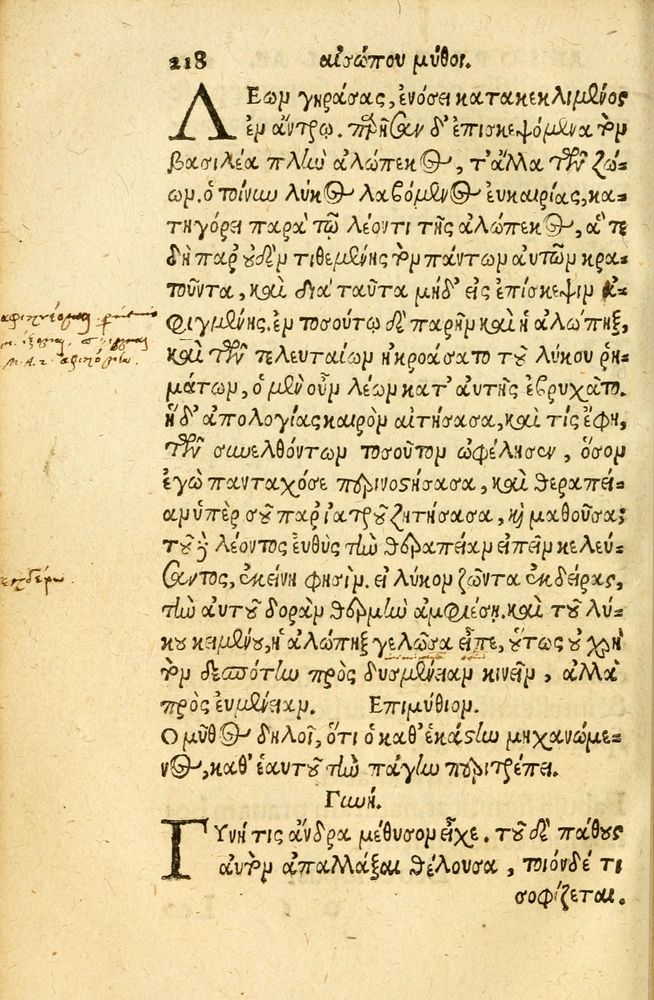 218 αἰσώπου μῦθοι.
Λέων γηράσας, ἐνόσει κατακεκλιμένος
ἐν ἄντρῳ. παρῆσαν δ' ἐπισκεψόμενα τὸν
βασιλέα πλὴν ἀλώπεκος, τ' ἄλλα τῶν ζώ-
ων. ὁ τοίνυν λύκος λαβόμενος εὐκαιρίας, κα-
τηγόρει παρὰ τῷ λέοντι τῆς ἀλώπεκος, ἅτε
δὴ παρ' οὐδὲν τιθεμένης τὸν πάντων αὐτῶν κρα-
τοῦντα, καὶ διὰ ταῦτα μηδ' εἰς ἐπίσκεψιν ἀ-
φιγμένης. ἐν τοσούτῳ δὲ παρῆν καὶ ἡ ἀλώπηξ,
καὶ τῶν τελευταίων ἠκροάσατο τοῦ λύκου ῥη-
μάτων, ὁ μὲν οὖν λέων κατ' αὐτῆς ἐβρυχᾶτο.
ἡ δ' ἀπολογίας καιρὸν αἰτήσασα, καὶ τίς ἔφη,
τῶν συνελθόντων τοσοῦτον ὠφέλησεν, ὅσον
ἐγὼ πανταχόσε περινοστήσασα, καὶ θεραπεί-
αν ὑπὲρ σοῦ παρ' ἰατροῦ ζητήσασα, καὶ μαθοῦσα;
τοῦ δὲ λέοντος εὐθὺς τὴν θεραπείαν εἰπεῖν κελεύ-
σαντος, ἐκείνη φησὶν. εἰ λύκον ζῶντα ἐκδείρας,
τὴν αὐτοῦ δορὰν θερμὴν ἀμφιέσῃ. καὶ τοῦ λύ-
κου κειμένου, ἡ ἀλώπηξ γελῶσα εἶπε, οὕτως οὐ χρὴ
τὸν δεσπότην πρὸς δυσμένειαν κινεῖν, ἀλλὰ
πρὸς εὐμένειαν. Ἐπιμύθιον.
Ὁ μῦθος δηλοῖ, ὅτι ὁ καθ' ἑκάστην μηχανώμε-
νος, καθ' ἑαυτοῦ τὴν πάγην περιτρέπει.
Γυνή.
Γυνή τις ἄνδρα μέθυσον εἶχε. τοῦ δὲ πάθους
αὐτὸν ἀπαλλάξαι θέλουσα, τοιόνδέ τι
σοφίζεται.
ἐκδέρω.